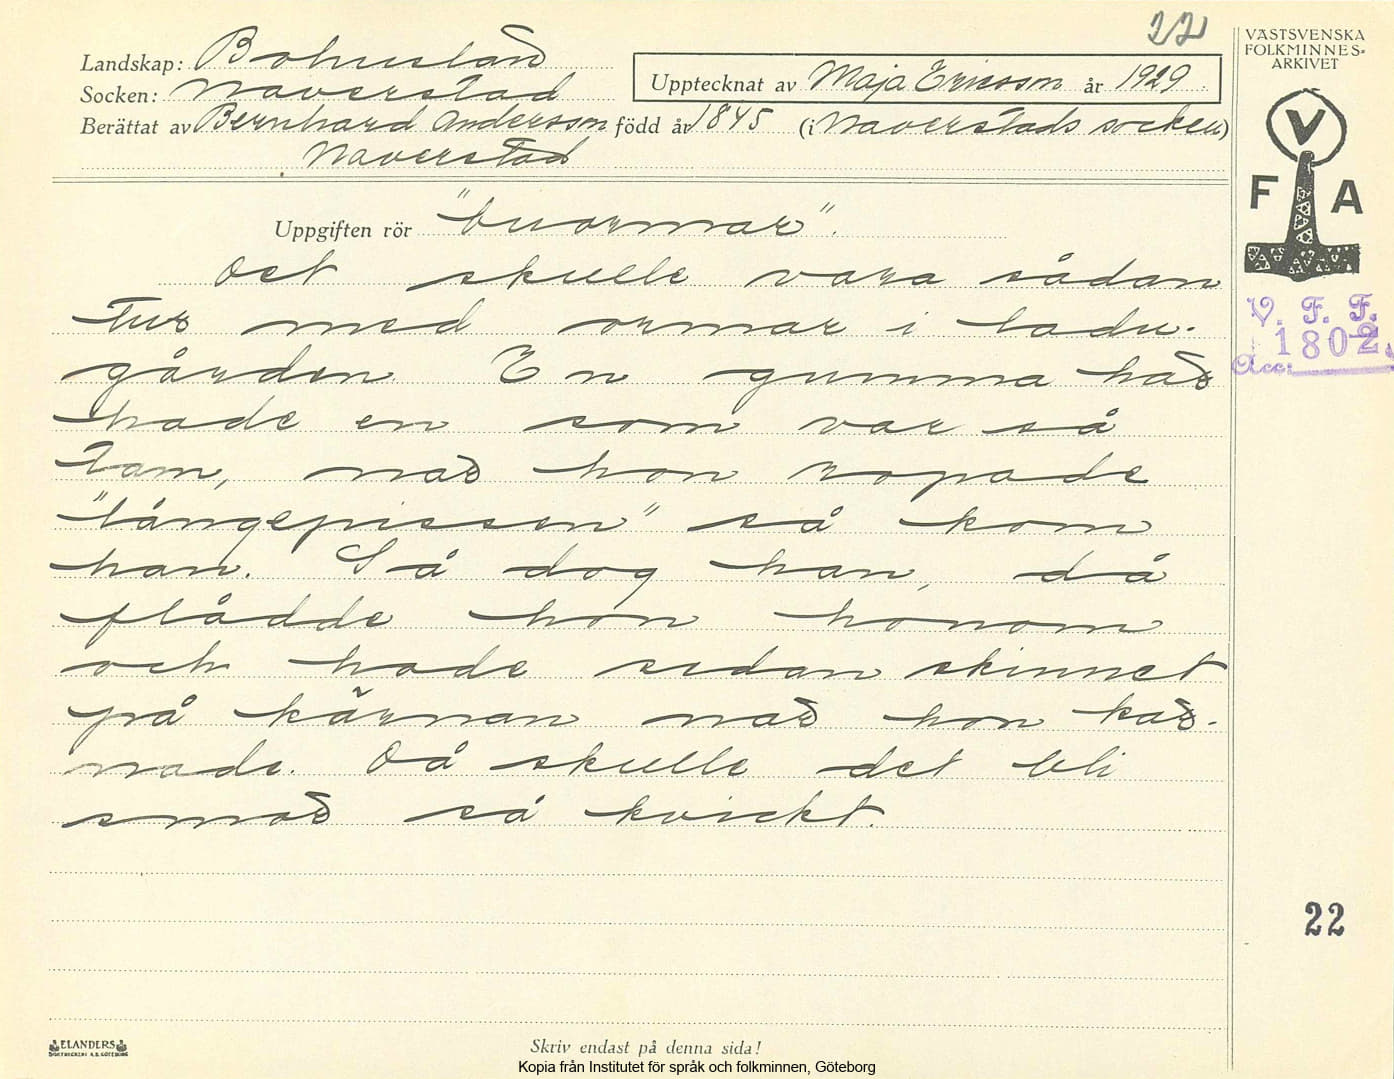 22
VÄSTSVENSKA
FOLKMINNES-
ARKIVET
Landskap: Bohuslän
Socken: Naverstad
Upptecknat av Maja Ericsson år 1929
Berättat av Bernhard Andersson född år 1845 (i Naverstads socken)
Naverstad
V
F A
Uppgiften rör "buormar".
Det skulle vara sådan
tur med ormar i ladu-
gården. En gumma här
hade en som var så
tam, när hon ropade
"långepissen" så kom
han. Så dog han, då
flådde hon honom
och hade sedan skinnet
på kärnan när hon kär-
nade. Då skulle det bli
smör så kvickt.
V. F. F.
1802
Acc:
22
ELANDERS
BOKTRYCKERI A.B. GÖTEBORG
Skriv endast på denna sida!
Kopia från Institutet för språk och folkminnen, Göteborg